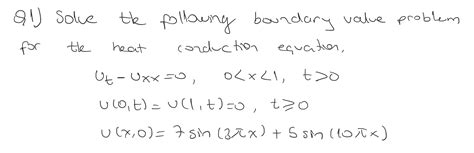 Q1) Solve the following boundary value problem
for the heat conduction equation,
u_t - u_xx = 0, 0<x<1, t>0
u(0,t) = u(1,t) = 0, t≥0
u(x,0) = 7 sin(3πx) + 5 sin(10πx)